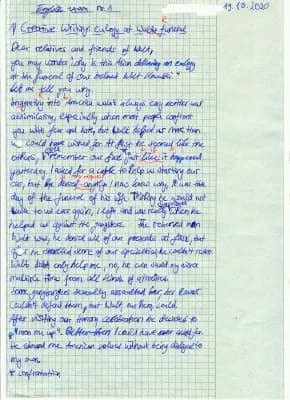 English exam nr. 1 19.10.2020
1) Creative Writing eulogy at Walts funeral
Dear relatives and friends of Walt,
you may wonder why is this thian delivering an eulogy
at the funeral of our beloved Walt
Let me tell you why.
to America wasn't always easy neither was
assimilating, especially when most people confront
you with fear and hate, but Walt helped us more than
we could have wished for. At first he seemed like the
others, I remember our first just like it happened
yesterday, I asked for a cable to help us starting our
car, but he denied angrily. I now know why, it was the
day of the funeral of his wife. Thinking he would not
talk to us ever again, I left and was really when he
helped us against the gangsters. The reserved man
Walt was, he denied all of our presents at first, but
if I cooked some of our specialities he couldn't resist.
Walt didn't only help me, no, he even saved my sister
multiple times from all kinds of offences.
Some gangsters sexually assaulted her, her lover
couldn't defend them, but Walt, our hero, could.
After visiting our Hmong celebration he decided to
"man me up". Better than I could have ever asked for
he showed me American values without being disloyal to
my own.
* confrontation